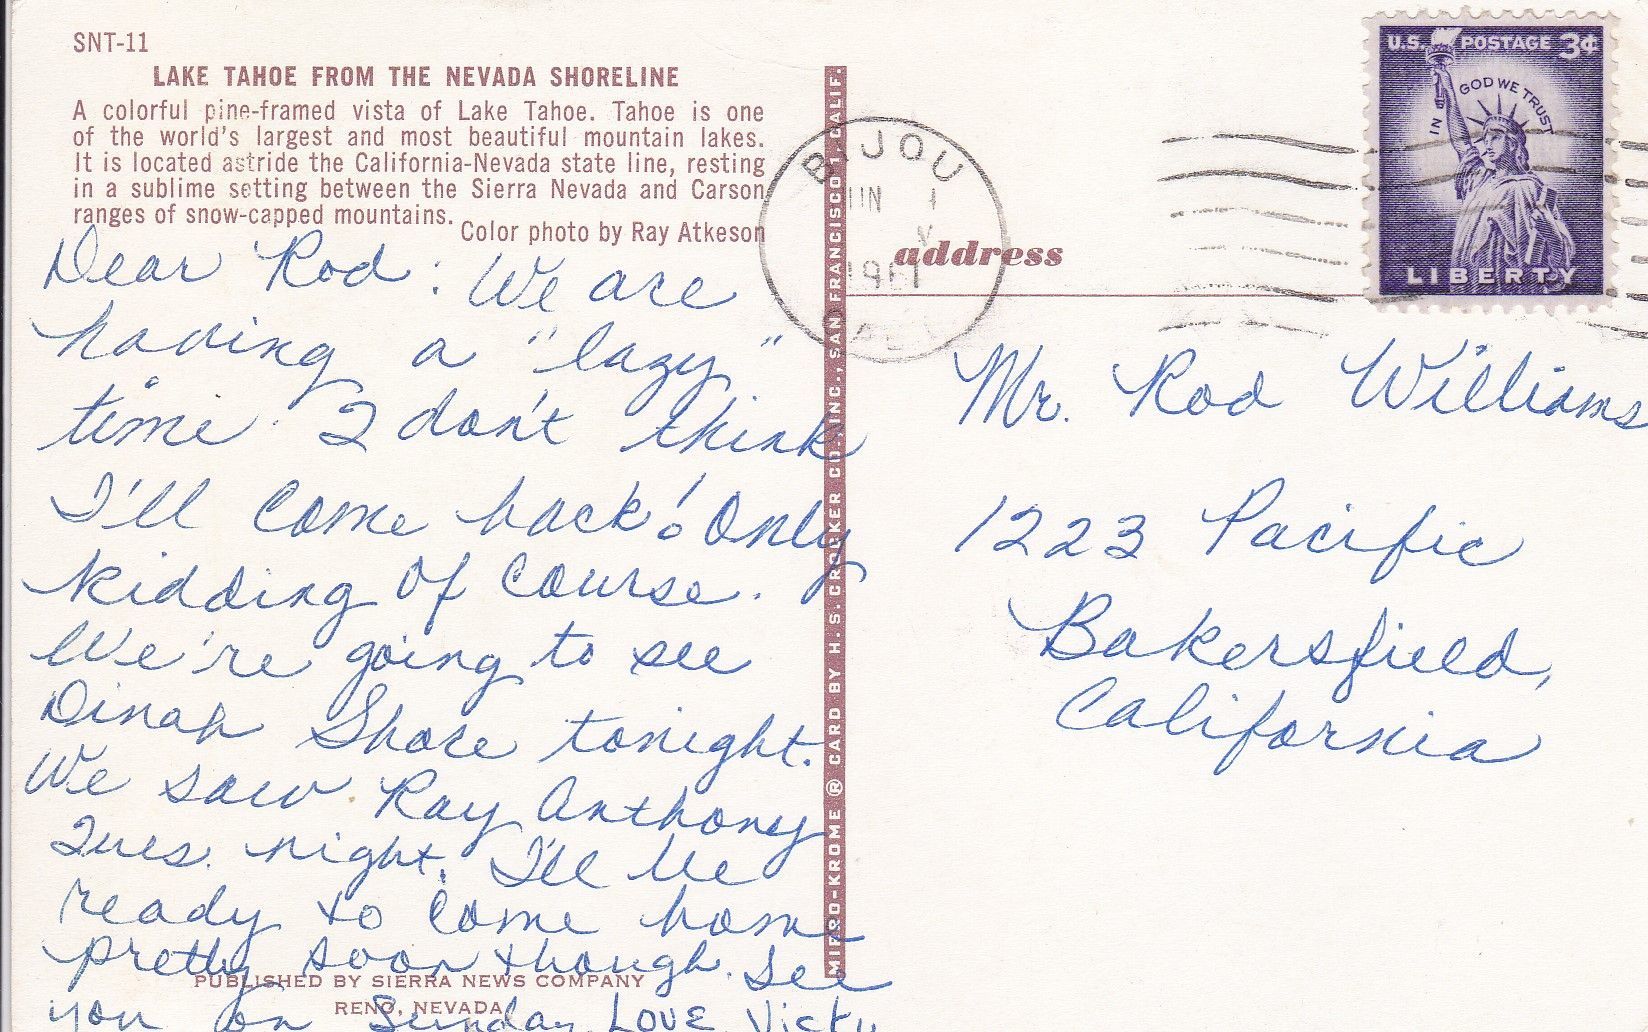 SNT-11
LAKE TAHOE FROM THE NEVADA SHORELINE
A colorful pine-framed vista of Lake Tahoe. Tahoe is one
of the world's largest and most beautiful mountain lakes.
It is located astride the California-Nevada state line, resting
in a sublime setting between the Sierra Nevada and Carson
ranges of snow-capped mountains.
Color photo by Ray Atkeson
Dear Rod: We are
having a "lazy"
time. I don't think
I'll come back! Only
kidding of course.
We're going to see
Dinah Shore tonight.
We saw Ray Anthony
Tues. night. I'll be
ready to come home
pretty soon though. See
you on Sunday. Love, Vicky
PUBLISHED BY SIERRA NEWS COMPANY
RENO, NEVADA
MIRRO-KROME ® CARD BY H.S. CROCKER CO., INC., SAN FRANCISCO 1, CALIF.
BIJOU
JUN 1
1961
address
U.S. POSTAGE 3¢
IN GOD WE TRUST
LIBERTY
Mr. Rod Williams
1223 Pacific
Bakersfield,
California